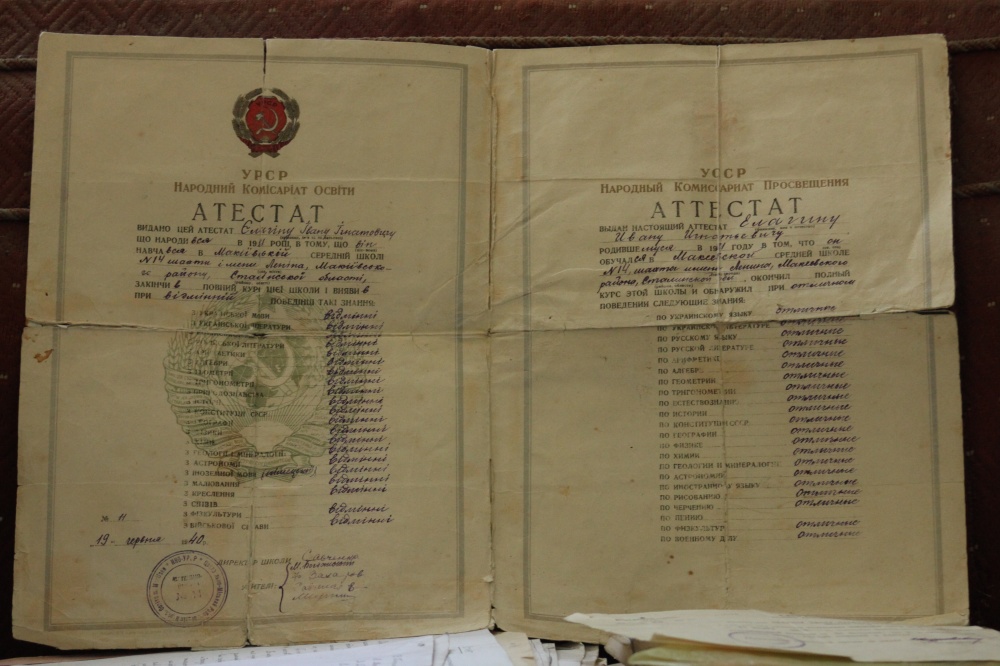 УРСР
НАРОДНИЙ КОМІСАРІАТ ОСВІТИ
АТЕСТАТ
ВИДАНО ЦЕЙ АТЕСТАТ Єлагіну Івану Ігнатовичу
ЩО НАРОДИвся В 1921 РОЦІ, В ТОМУ, ЩО він
НАВЧАвся В Макіївській СЕРЕДНІЙ ШКОЛІ
№14 шахти імени Леніна, Макіївсько-
го району, Сталінської області,
ЗАКІНЧИв ПОВНИЙ КУРС ЦІЄЇ ШКОЛИ І ВИЯВИв
ПРИ відмінній ПОВЕДІНЦІ ТАКІ ЗНАННЯ:
З УКРАЇНСЬКОЇ МОВИ відмінні
З УКРАЇНСЬКОЇ ЛІТЕРАТУРИ відмінні
відмінні
ЛІТЕРАТУРИ відмінні
відмінні
відмінні
З ГЕОМЕТРІЇ відмінні
ТРИГОНОМЕТРІЇ відмінні
відмінні
відмінні
КОНСТИТУЦІЇ СРСР відмінні
відмінні
відмінні
відмінні
З ГЕОЛОГІЇ І МІНЕРАЛОГІЇ відмінні
З АСТРОНОМІЇ відмінні
З ІНОЗЕМНОЇ МОВИ відмінні
З МАЛЮВАННЯ відмінні
З КРЕСЛЕННЯ відмінні
З СПІВІВ
З ФІЗКУЛЬТУРИ відмінні
З ВІЙСЬКОВОЇ СПРАВИ відмінні
№ 11
19 червня 1940 г.
ДИРЕКТОР ШКОЛИ Савченко
УЧИТЕЛІ:
Захаров
УССР
НАРОДНЫЙ КОМИССАРИАТ ПРОСВЕЩЕНИЯ
АТТЕСТАТ
ВЫДАН НАСТОЯЩИЙ АТТЕСТАТ Елагину
Ивану Игнатьевичу
РОДИВШЕМУся В 1921 ГОДУ В ТОМ, ЧТО он
ОБУЧАЛся В Макеевской СРЕДНЕЙ ШКОЛЕ
№14 шахты имени Ленина, Макеевского
района, Сталинской обл., ОКОНЧИЛ ПОЛНЫЙ
КУРС ЭТОЙ ШКОЛЫ И ОБНАРУЖИЛ ПРИ отличном
ПОВЕДЕНИИ СЛЕДУЮЩИЕ ЗНАНИЯ:
ПО УКРАИНСКОМУ ЯЗЫКУ отличные
ПО УКРАИНСКОЙ ЛИТЕРАТУРЕ отличные
ПО РУССКОМУ ЯЗЫКУ отличные
ПО РУССКОЙ ЛИТЕРАТУРЕ отличные
ПО АРИФМЕТИКЕ отличные
ПО АЛГЕБРЕ отличные
ПО ГЕОМЕТРИИ отличные
ПО ТРИГОНОМЕТРИИ отличные
ПО ЕСТЕСТВОЗНАНИЮ отличные
ПО ИСТОРИИ отличные
ПО КОНСТИТУЦИИ СССР отличные
ПО ГЕОГРАФИИ отличные
ПО ФИЗИКЕ отличные
ПО ХИМИИ отличные
ПО ГЕОЛОГИИ И МИНЕРАЛОГИИ отличные
ПО АСТРОНОМИИ отличные
ПО ИНОСТРАННОМУ ЯЗЫКУ отличные
ПО РИСОВАНИЮ отличные
ПО ЧЕРЧЕНИЮ отличные
ПО ПЕНИЮ
ПО ФИЗКУЛЬТУРЕ отличные
ПО ВОЕННОМУ ДЕЛУ отличные